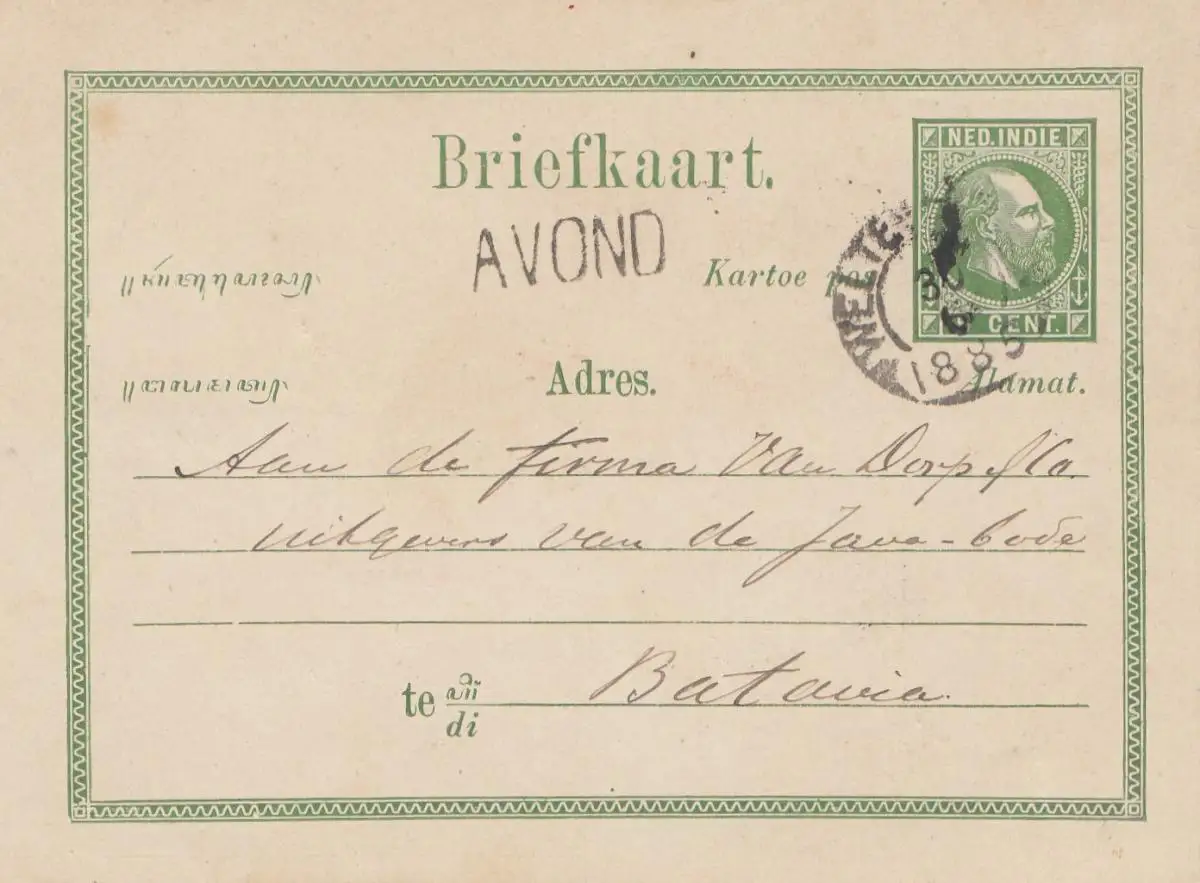 Briefkaart.
NED.INDIE
AVOND
Kartoe pos
WELTE
30
6
1885
CENT.
Adres.
Alamat.
Aan de firma Van Dorp & Co.
uitgevers van de Java-bode
te
di
Batavia.